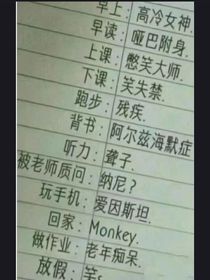 早上：高冷女神.
早读：哑巴附身.
上课：憋笑大师.
下课：笑失禁.
跑步：残疾
背书：阿尔兹海默症
听力：聋子.
被老师质问：纳尼？
玩手机：爱因斯坦.
回家：Monkey.
做作业：老年痴呆.
放假：笑